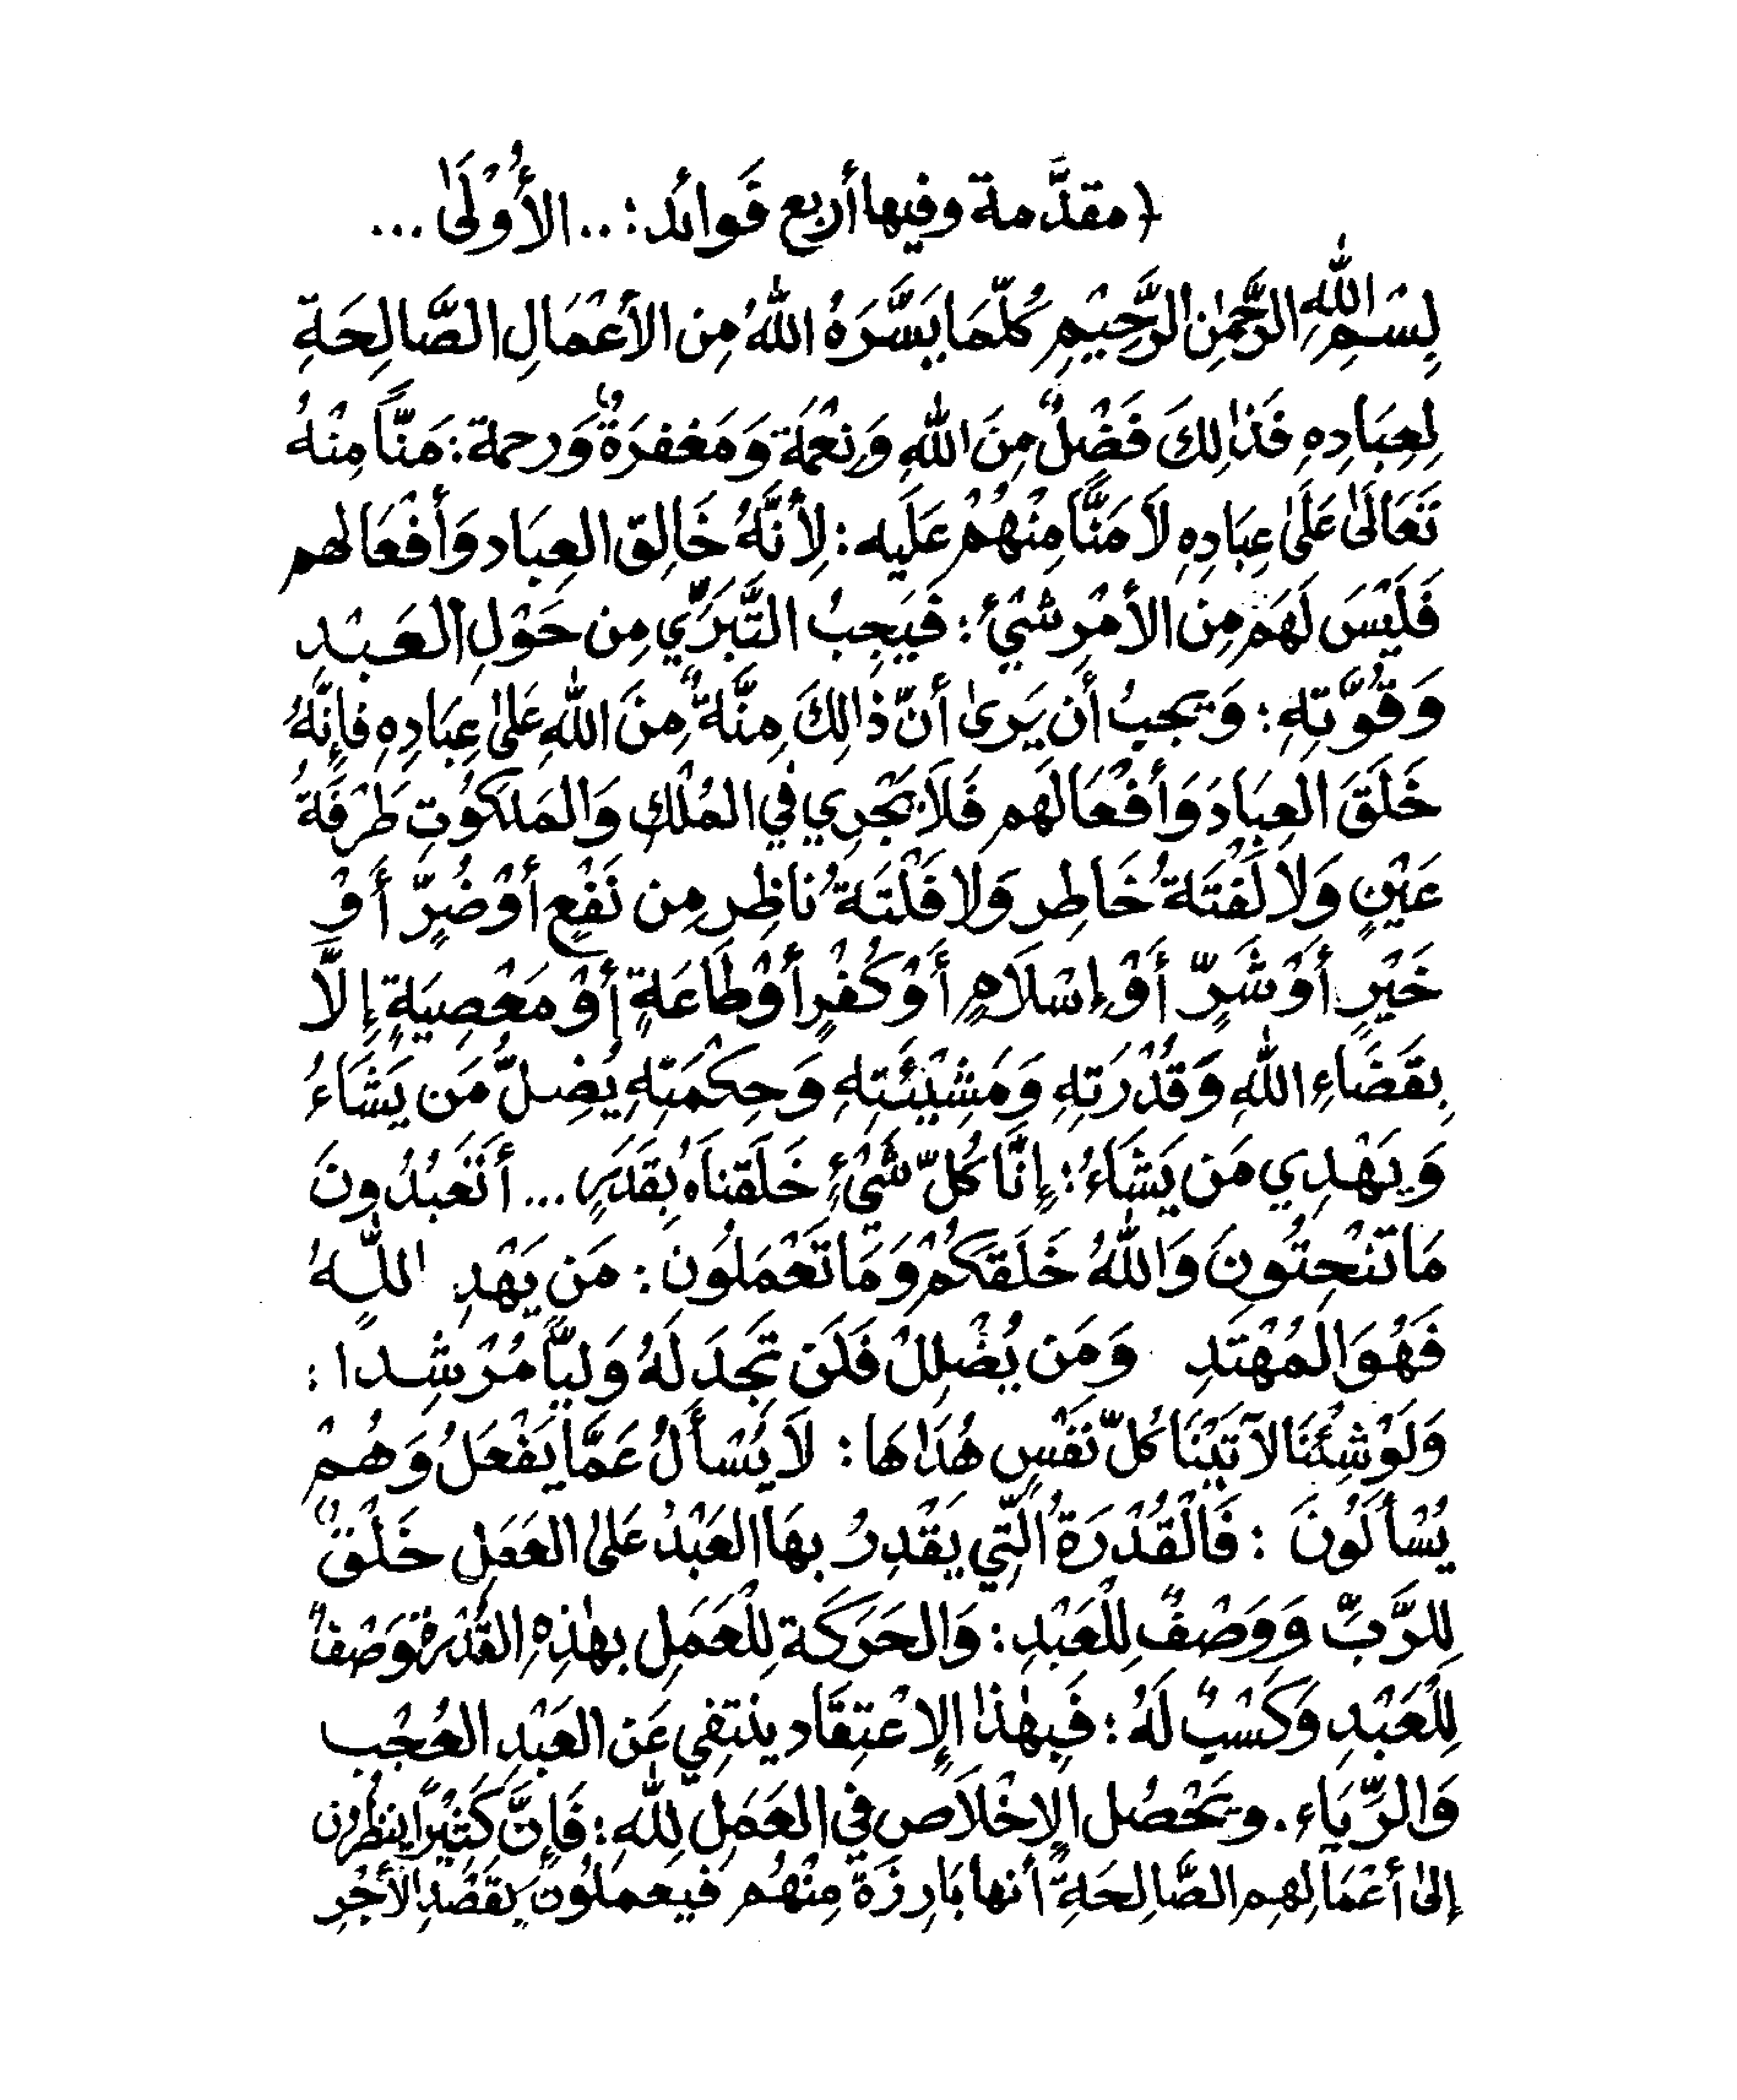 ﴿ مقدَّمة وفيها أربع فَوائد: .. الأُوْلَىٰ ...
بِسْمِ اللهِ الرَّحْمٰنِ الرَّحِيْمِ كُلّمَا يَسَّرَهُ اللهُ مِن الأَعْمَالِ الصَّالِحَةِ
لِعِبَادِهِ فَذٰالِكَ فَضْلٌ مِنَ اللهِ وَنِعْمَة وَمَغفرَةٌ وَرحمة: مَنّاً مِنْهُ
تَعَالَىٰ عَلَىٰ عِبَادِهِ لاَ مَنَّاً مِنْهُمْ عَلَيه: لِأَنَّهُ خَالِق العِبَاد وَأَفْعَالهم
فَلَيْسَ لَهُمْ مِنَ الأَمْرِ شَيْءٌ: فَيَجِبُ التَّبَرِّي مِن حَوْلِ العَبْدِ
وَقُوَّتِهِ: وَيَجبُ أَن يَرىٰ أَنّ ذٰالِكَ مِنَّةٌ مِنَ اللهِ عَلىٰ عِبَادِهِ فإِنَّهُ
خَلَقَ العِبَادَ وَأَفْعَالَهم فَلاَ يَجْرِي فِي المُلْكِ وَالمَلَكُوْتِ طَرْفَةُ
عَيْنٍ وَلا لَفْتَةُ خَاطِر وَلا فَلْتَةُ نَاظِرٍ مِن نَفْعٍ أَوْ ضُرٍّ أَوْ
خَيْرٍ أَوْ شَرٍّ أَوْ إِسْلاَمٍ أَوْ كُفْرٍ أَوْ طَاعَةٍ أَوْ مَعْصِيَةٍ إِلاَّ
بِقَضَاءِ اللهِ وَقُدْرَتِهِ وَمَشِيْئَتِهِ وَحِكْمَتِهِ يُضِلُّ مَن يَشَاءُ
وَيَهْدِي مَن يَشَاءُ: إِنَّا كُلّ شَيْءٍ خَلَقنَاهُ بِقَدَرٍ ... أَتَعْبُدُونَ
مَا تَنْحِتُونَ وَاللهُ خَلَقَكُمْ وَمَا تَعْمَلُونَ: مَن يَهْدِ اللهُ
فَهُوَ المُهْتَدِ وَمَن يُضْلِلْ فَلَن تَجِدَ لَهُ وَلِيّاً مُرْشِدا:
وَلَوْ شِئْنَا لآتَيْنَا كُلّ نَفْسٍ هُدَاهَا: لاَ يُسْأَلُ عَمَّا يَفْعَلُ وَهُمْ
يُسْأَلُونَ: فَالْقُدْرَةُ الَّتِي يَقْدِرُ بِهَا العَبْدُ عَلىٰ العَمَلِ خَلْقٌ
لِلرَّبِّ وَوَصْفٌ لِلْعَبْدِ: وَالحَرَكَة لِلْعَمَلِ بِهٰذِهِ القُدْرَة وَصْفٌ
لِلْعَبْدِ وَكَسْبٌ لَهُ: فَبِهٰذا الإِعْتِقَاد ينتفِي عَنِ العَبْدِ العُجْب
وَالرِّيَاء. ويَحْصُل الإِخْلاَص فِي العَمَلِ لِلّٰهِ: فَإِنَّ كَثِيْراً ينظُرون
إِلىٰ أَعْمَالِهِم الصَّالِحَةِ أَنها بَارِزَةٌ مِنْهُم فَيَعمَلُونَ بِقَصْدِ الأَجْرِ